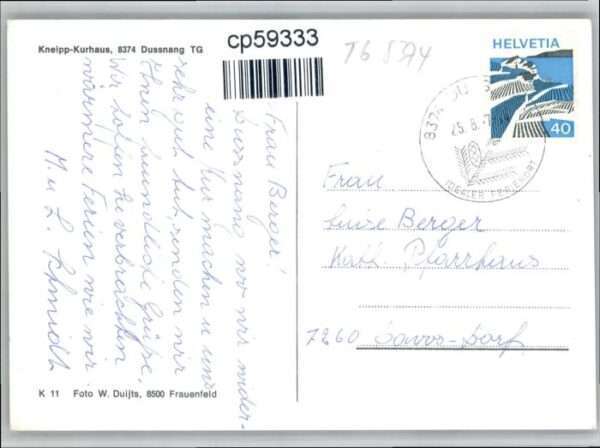 Kneipp-Kurhaus, 8374 Dussnang TG
cp59333
TG 574
HELVETIA
40
8374 DUSS
25.8.7
Frau Berger!
Dussnang wo wir wieder-
eine Kur machen u uns
sehr gut tut, senden wir
Ihnen freundliche Grüsse.
Wir sollen Sie verbrachten
wärmere Ferien wie wir.
M. u. L. Schmidt
Frau
Luise Berger
Kath. Pfarrhaus
7260 Davos-Dorf
K 11 Foto W. Duijts, 8500 Frauenfeld